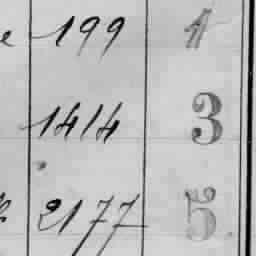 199 1
1414 3
2177 5